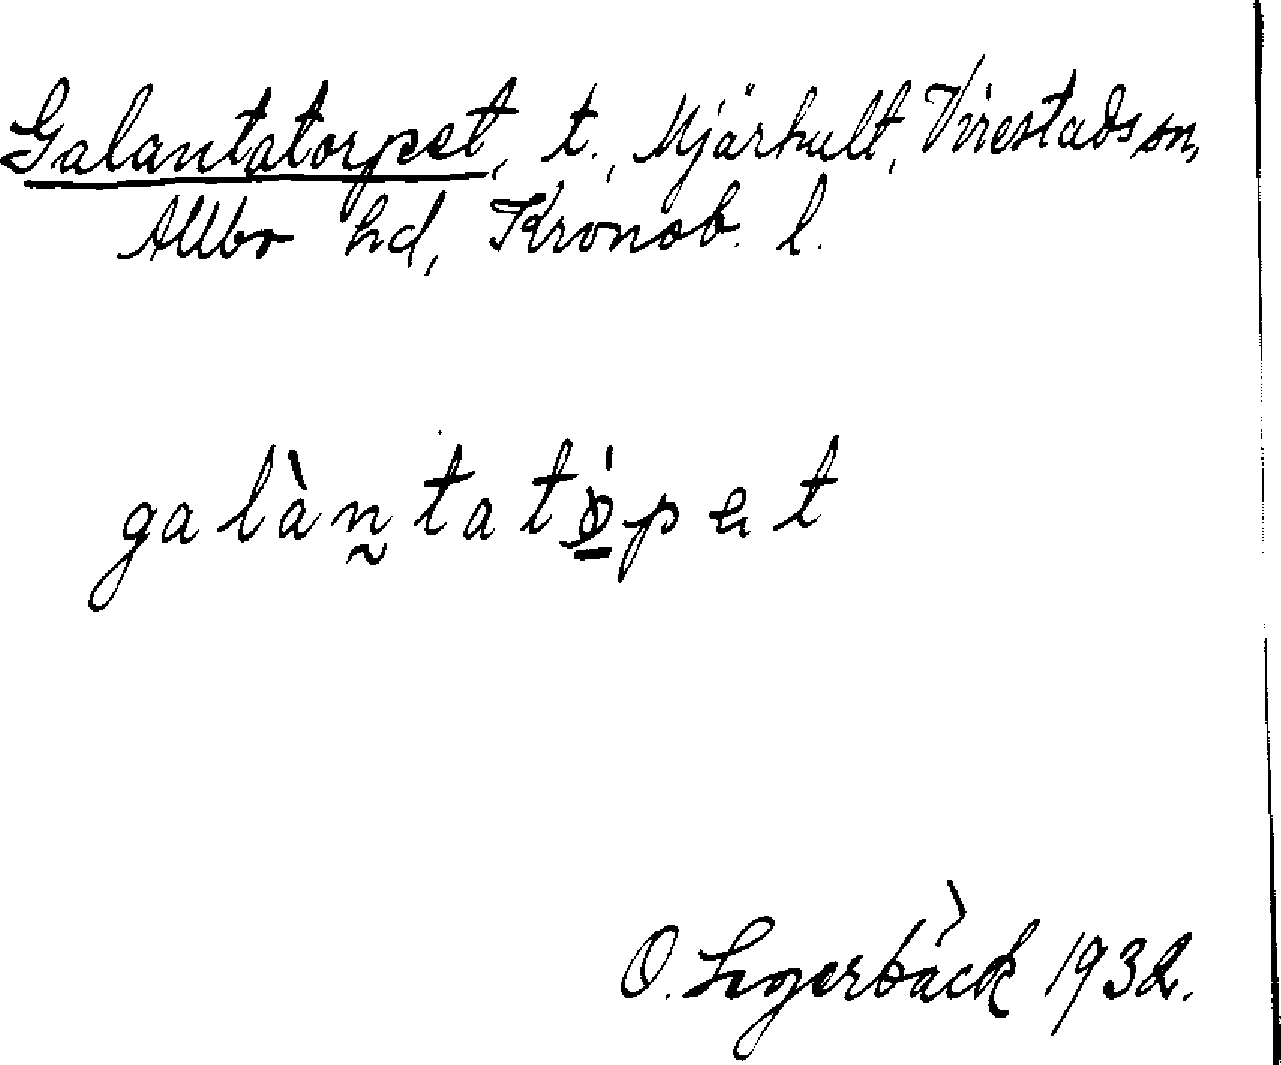 Galantatorpet, t., Mjärhult, Virestads sn,
Allbo hd, Kronob. l.
galàn̰tatø̲̍pet
O. Legerbäck 1932.